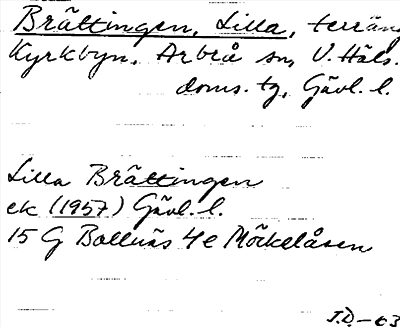 Brättingen, Lilla, terräng
Kyrkbyn, Arbrå sn, V. Häls.
doms. tg, Gävl. l.
Lilla Brättingen
ek (1957) Gävl. l.
15 G Bollnäs 4e Möckelåsen
J.D.-63